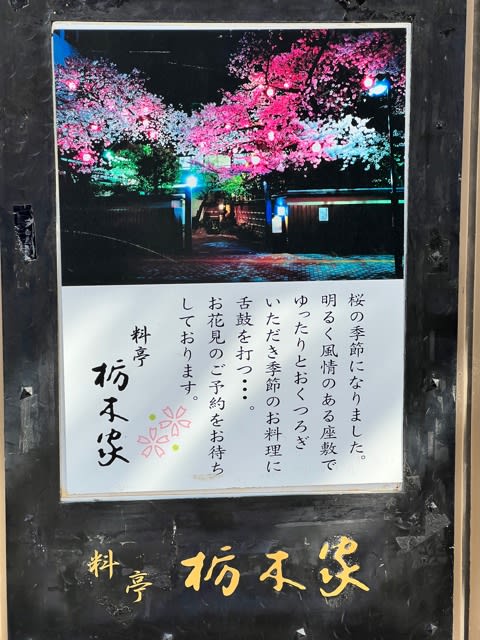 桜の季節になりました。
明るく風情のある座敷で
ゆったりとおくつろぎ
いただき季節のお料理に
舌鼓を打つ・・・。
お花見のご予約をお待ち
しております。
料亭
栃木家
料亭
栃木家